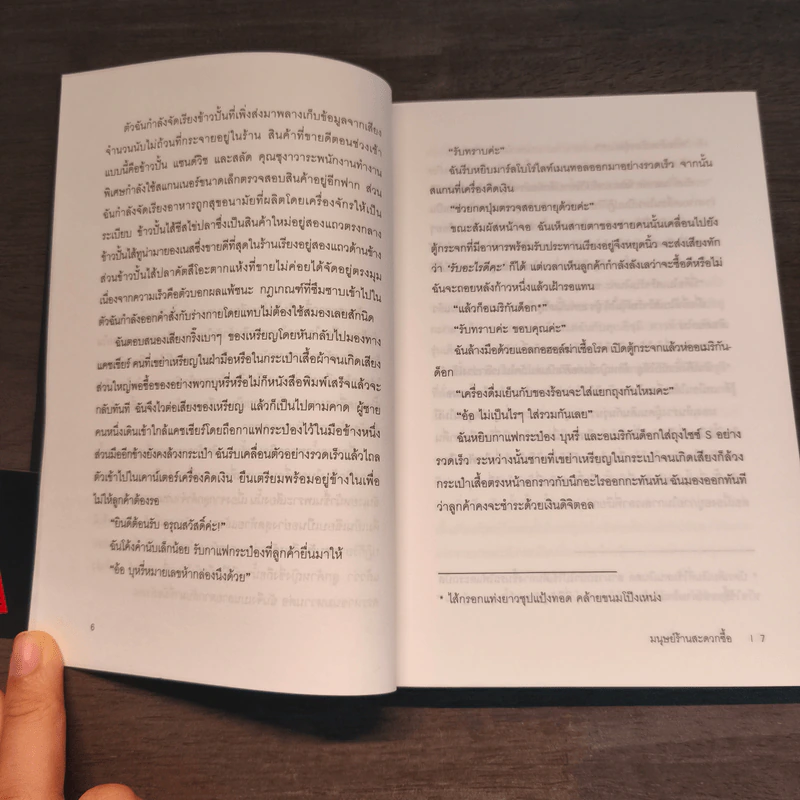 ตัวฉันกำลังจัดเรียงข้าวปั้นที่เพิ่งส่งมาพลางเก็บข้อมูลจากเสียง
จำนวนนับไม่ถ้วนที่กระจายอยู่ในร้าน สินค้าที่ขายดีตอนช่วงเช้า
แบบนี้คือข้าวปั้น แซนด์วิช และสลัด คุณซุงาวาระพนักงานทำงาน
พิเศษกำลังใช้สแกนเนอร์ขนาดเล็กตรวจสอบสินค้าอยู่อีกฟาก ส่วน
ฉันกำลังจัดเรียงอาหารถูกสุขอนามัยที่ผลิตโดยเครื่องจักรให้เป็น
ระเบียบ ข้าวปั้นไส้ชีสไข่ปลาซึ่งเป็นสินค้าใหม่อยู่สองแถวตรงกลาง
ข้าวปั้นไส้ทูน่ามายองเนสซึ่งขายดีที่สุดในร้านเรียงอยู่สองแถวด้านข้าง
ส่วนข้าวปั้นไส้ปลาคัตสึโอะตากแห้งที่ขายไม่ค่อยได้จัดอยู่ตรงมุม
เนื่องจากความเร็วคือตัวบอกผลแพ้ชนะ กฎเกณฑ์ที่ซึมซาบเข้าไปใน
ตัวฉันกำลังออกคำสั่งกับร่างกายโดยแทบไม่ต้องใช้สมองเลยสักนิด
ฉันตอบสนองเสียงกริ๊งเบาๆ ของเหรียญโดยหันกลับไปมองทาง
แคชเชียร์ คนที่เขย่าเหรียญในฝ่ามือหรือในกระเป๋าเสื้อผ้าจนเกิดเสียง
ส่วนใหญ่พอซื้อของอย่างพวกบุหรี่หรือไม่ก็หนังสือพิมพ์เสร็จแล้วจะ
กลับทันที ฉันจึงไวต่อเสียงของเหรียญ แล้วก็เป็นไปตามคาด ผู้ชาย
คนหนึ่งเดินเข้าใกล้แคชเชียร์โดยถือกาแฟกระป๋องไว้ในมือข้างหนึ่ง
ส่วนมืออีกข้างยังคงล้วงกระเป๋า ฉันรีบเคลื่อนตัวอย่างรวดเร็วแล้วไถล
ตัวเข้าไปในเคาน์เตอร์เครื่องคิดเงิน ยืนเตรียมพร้อมอยู่ข้างในเพื่อ
ไม่ให้ลูกค้าต้องรอ
“ยินดีต้อนรับ อรุณสวัสดิ์ค่ะ!”
ฉันโค้งคำนับเล็กน้อย รับกาแฟกระป๋องที่ลูกค้ายื่นมาให้
“อ้อ บุหรี่หมายเลขห้ากล่องนึงด้วย”
6
“รับทราบค่ะ”
ฉันรีบหยิบมาร์ลโบโรไลท์เมนทอลออกมาอย่างรวดเร็ว จากนั้น
สแกนที่เครื่องคิดเงิน
“ช่วยกดปุ่มตรวจสอบอายุด้วยค่ะ”
ขณะสัมผัสหน้าจอ ฉันเห็นสายตาของชายคนนั้นเคลื่อนไปยัง
ตู้กระจกที่มีอาหารพร้อมรับประทานเรียงอยู่จึงหยุดนิ้ว จะส่งเสียงทัก
ว่า ‘รับอะไรดีคะ’ ก็ได้ แต่เวลาเห็นลูกค้ากำลังลังเลว่าจะซื้อดีหรือไม่
ฉันจะถอยหลังก้าวหนึ่งแล้วเฝ้ารอแทน
“แล้วก็อเมริกันด็อก*”
“รับทราบค่ะ ขอบคุณค่ะ”
ฉันล้างมือด้วยแอลกอฮอล์ฆ่าเชื้อโรค เปิดตู้กระจกแล้วห่ออเมริกัน-
ด็อก
“เครื่องดื่มเย็นกับของร้อนจะใส่แยกถุงกันไหมคะ”
“อ้อ ไม่เป็นไรๆ ใส่รวมกันเลย”
ฉันหยิบกาแฟกระป๋อง บุหรี่ และอเมริกันด็อกใส่ถุงไซซ์ S อย่าง
รวดเร็ว ระหว่างนั้นชายที่เขย่าเหรียญในกระเป๋าจนเกิดเสียงก็ล้วง
กระเป๋าเสื้อตรงหน้าอกราวกับนึกอะไรออกกะทันหัน ฉันมองออกทันที
ว่าลูกค้าคงจะชำระด้วยเงินดิจิตอล
* ไส้กรอกแท่งยาวชุบแป้งทอด คล้ายขนมโป๊งเหน่ง
มนุษย์ร้านสะดวกซื้อ | 7